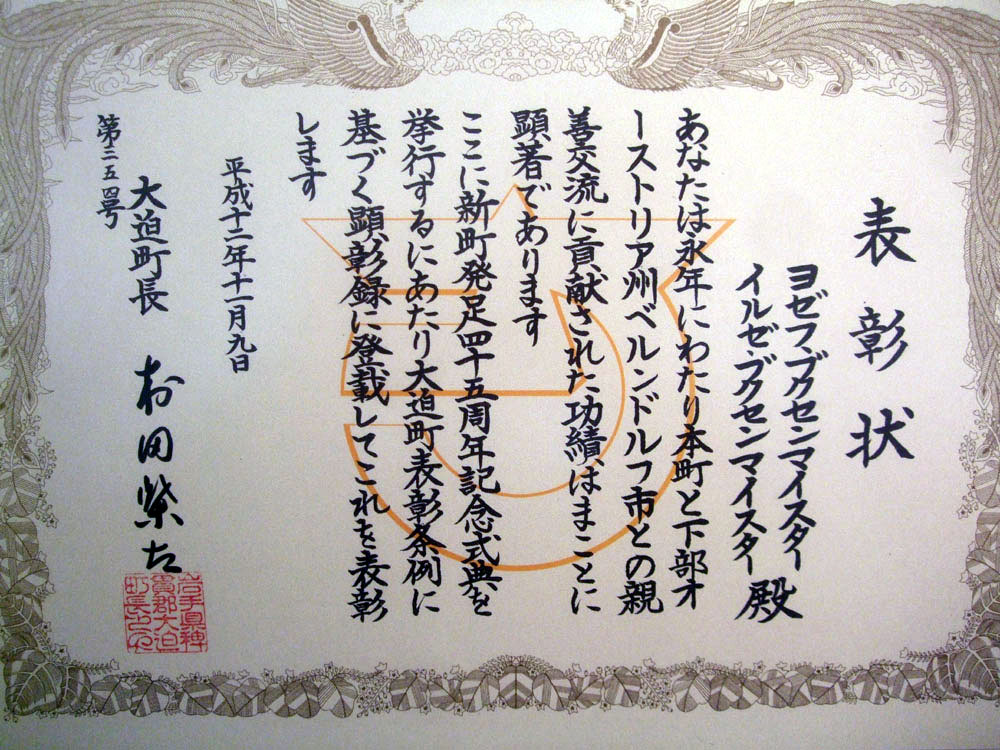 表彰状
ヨゼフブクセンマイスター
イルゼ・ブクセンマイスター 殿
あなたは永年にわたり本町と下部オ
ーストリア州ベルンドルフ市との親
善交流に貢献された功績はまことに
顕著であります
ここに新町発足四十五周年記念式典を
挙行するにあたり大迫町表彰条例に
基づく顕彰録に登載してこれを表彰
します
平成十二年十一月九日
大迫町長 村田柴太
第三五四号
岩手県稗
貫郡大迫
町長之印